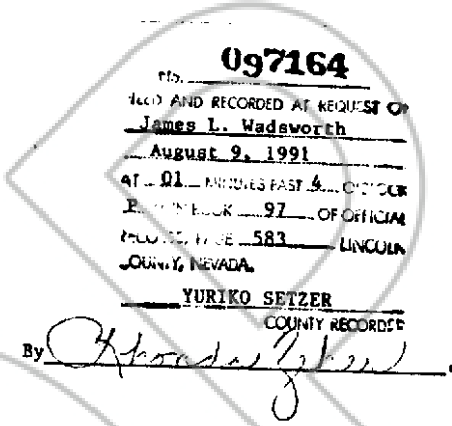 No. 097164
FILED AND RECORDED AT REQUEST OF
James L. Wadsworth
August 9, 1991
AT 01 MINUTES PAST 4 O'CLOCK
P IN BOOK 97 OF OFFICIAL
RECORDS, PAGE 583 LINCOLN
COUNTY, NEVADA.
YURIKO SETZER
COUNTY RECORDER
By